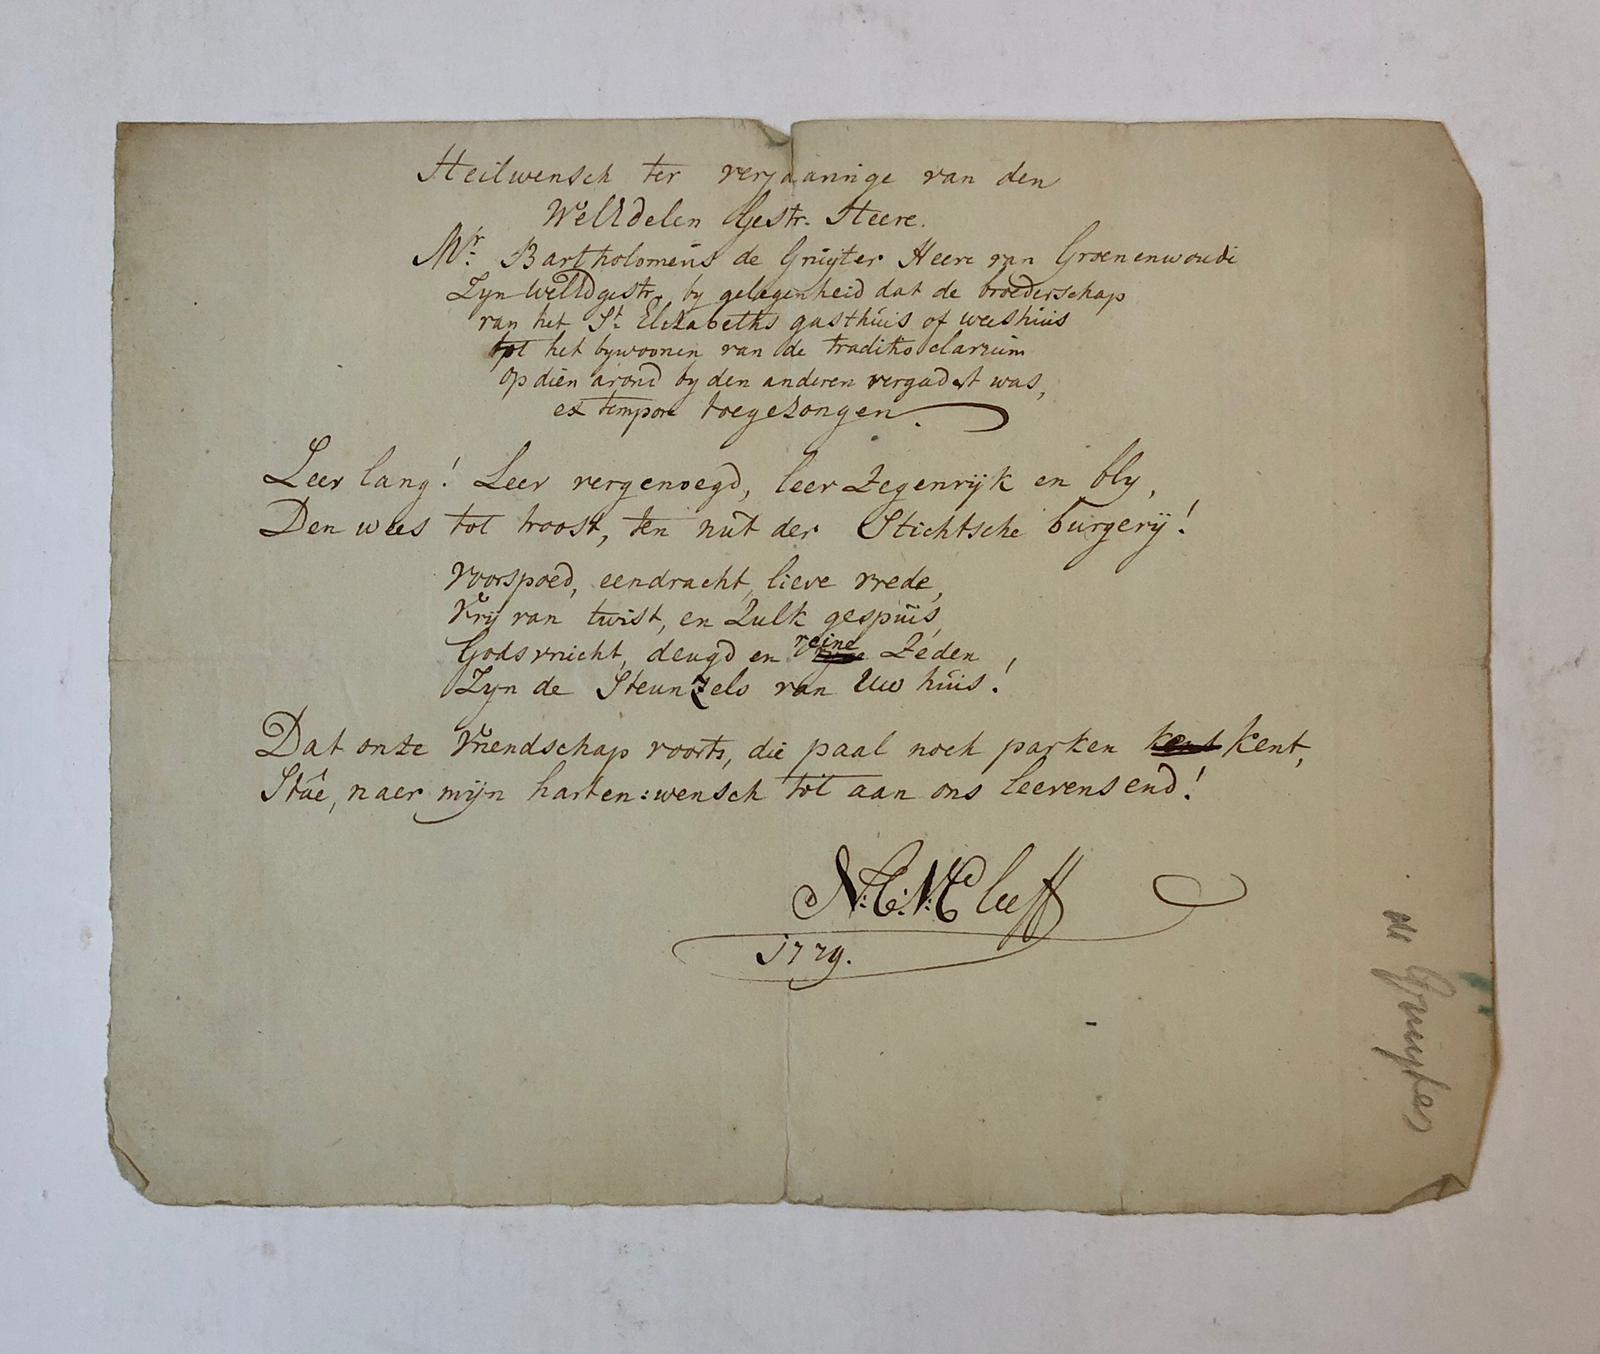 Heilwensch ter verjaaringe van den
WelEdelen Gestr. Heere.
Mr. Bartholomeus de Gruijter Heere van Groenenwoude
Zyn WelEdgestr. by gelegenheid dat de broederschap
van het St. Elizabeths gasthuis of weeshuis
tot het bywoonen van de traditio clavium
op dien avond by den anderen vergadert was,
ex tempore toegezongen.
Leev lang! Leev vergenoegd, leev Zegenrijk en bly,
Den wees tot troost, ten nut der Stichtsche burgerij!
Voorspoed, eendracht, lieve vrede,
Vrij van twist, en Zulk gespuis,
Godsvrucht, deugd en reine Zeden,
Zyn de Steunzels van Uw huis!
Dat onze Vriendschap voorts, die paal noch parken kent kent,
Stâe, naer mijn harten:wensch tot aan ons leevensend!
N:C:V:Cleeff
1779.
de Gruyter